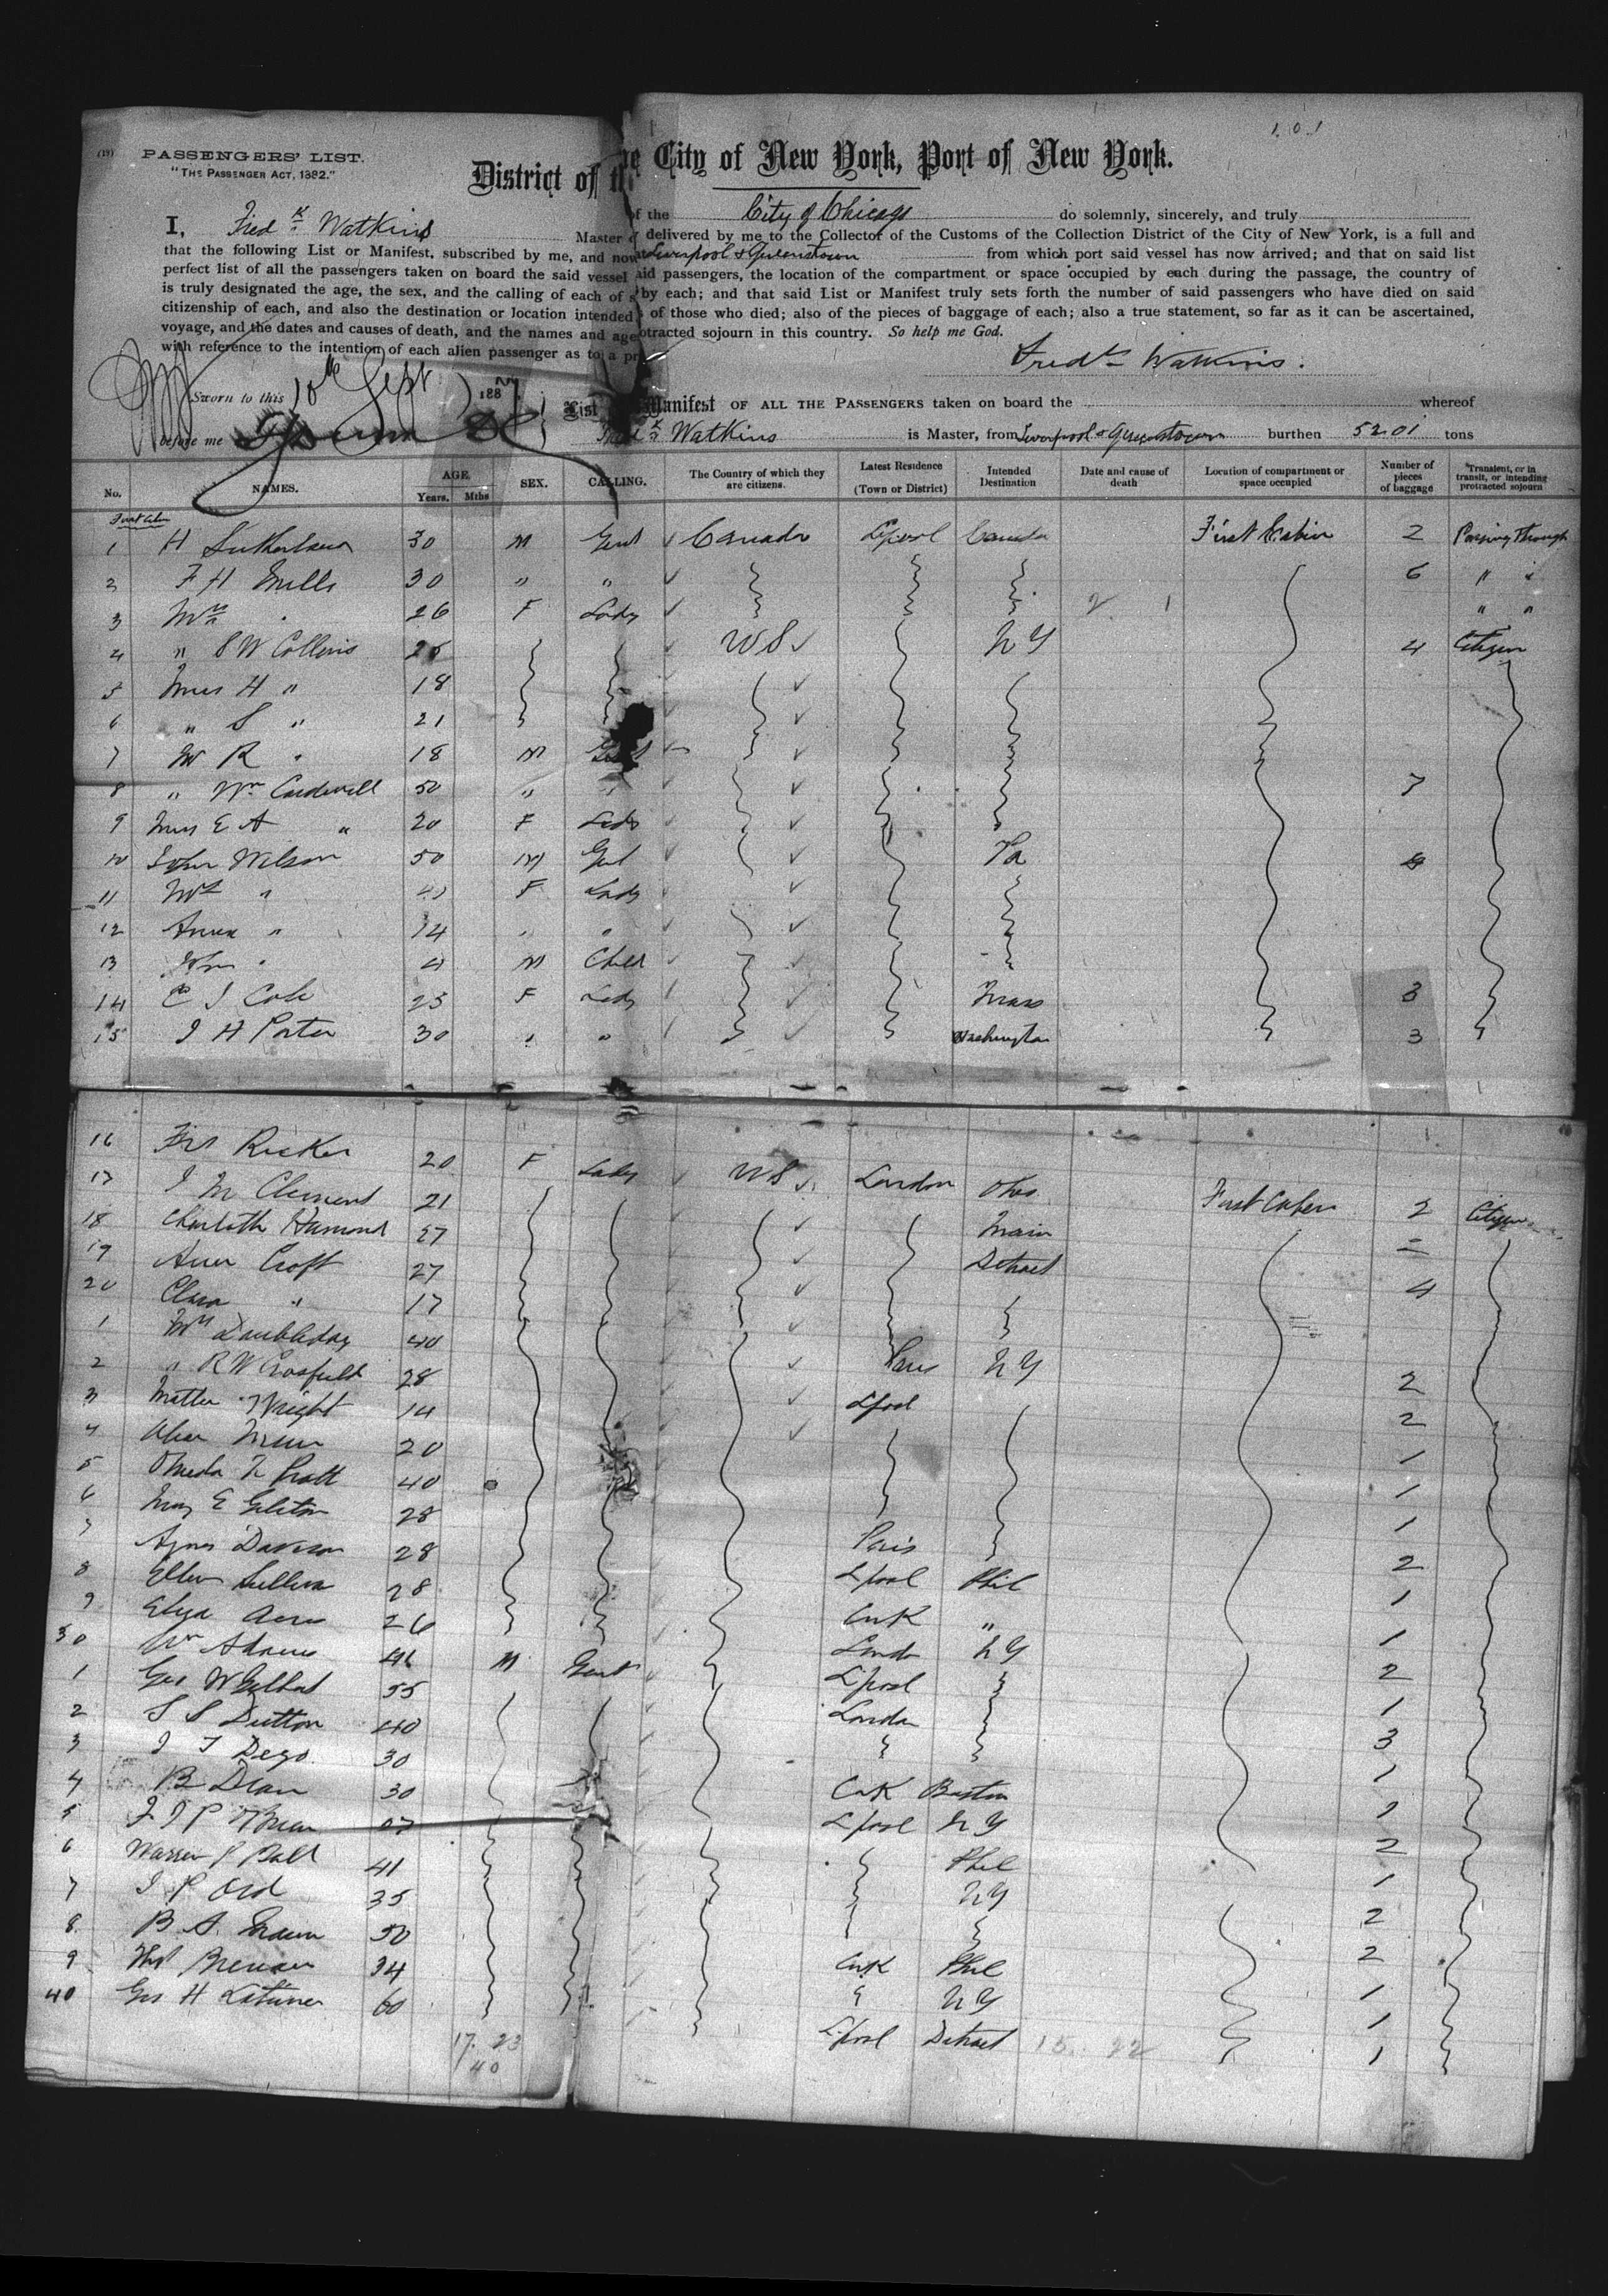 (19) PASSENGERS' LIST.
"THE PASSENGER ACT, 1882."
1.0.1
District of the City of New York, Port of New York.
I, Fredk Watkins Master of the City of Chicago do solemnly, sincerely, and truly
that the following List or Manifest, subscribed by me, and now delivered by me to the Collector of the Customs of the Collection District of the City of New York, is a full and
perfect list of all the passengers taken on board the said vessel at Liverpool & Queenstown from which port said vessel has now arrived; and that on said list
is truly designated the age, the sex, and the calling of each of said passengers, the location of the compartment or space occupied by each during the passage, the country of
citizenship of each, and also the destination or location intended by each; and that said List or Manifest truly sets forth the number of said passengers who have died on said
voyage, and the dates and causes of death, and the names and ages of those who died; also of the pieces of baggage of each; also a true statement, so far as it can be ascertained,
with reference to the intention of each alien passenger as to a protracted sojourn in this country. So help me God.
Fredk Watkins.
Sworn to this 10th Sept 188
before me
List Manifest OF ALL THE PASSENGERS taken on board the whereof
Fredk Watkins is Master, from Liverpool & Queenstown burthen 5201 tons
No. NAMES. AGE. Years. Mths SEX. CALLING. The Country of which they are citizens. Latest Residence (Town or District) Intended Destination Date and cause of death Location of compartment or space occupied Number of pieces of baggage Transient, or in transit, or intending protracted sojourn
First Cabin
1 H Sutherland 30 M Gent Canada Lpool Canada First Cabin 2 Passing Through
2 F H Mills 30 " " 6 " "
3 Mrs " 26 F Lady 2 1 " "
4 " S W Collins 25 U S N Y 4 Citizen
5 Miss H " 18
6 " S " 21
7 Mr R " 18 M Gent
8 " Wm Cardwell 50 " " 7
9 Miss E A " 20 F Lady
10 John Wilson 50 M Gent Pa
11 Mrs " F Lady
12 Anna " 14 " "
13 John " 4 M Child
14 C J Cole 25 F Lady Mass 3
15 J H Porter 30 " " Washington 3
16 Ricker 20 F Lady U S London Ohio First Cabin 2 Citizen
17 J M Clement 21 Main
18 Charlotte Hamond 27 Detroit
19 Croft 27 4
20 Clara " 17
1 Mrs Doubleday 40 Paris N Y
2 " R W Crosfield 28 Lpool 2
3 Mattie Wright 14 2
4 20 1
5 Pratt 40 1
6 Mary E 28 Paris 1
7 Agnes Davison 28 Lpool Phil 2
8 Ellen Sullivan 28 Cork " 1
9 Eliza 26 London N Y 1
30 Wm Adams 41 M Gent Lpool 2
1 Geo W 55 London 1
2 S S Dutton 40 3
3 J T 30 Cork Boston 1
4 B Dean 30 Lpool N Y
5 Phil 2
6 Warren P 41 N Y 1
7 J P Ord 35 2
8 B A 50 Cork Phil 2
9 Thos Brenan 34 N Y 1
40 Geo H Latimer 60 Lpool Detroit 1
1
17. 23 15. 22
40